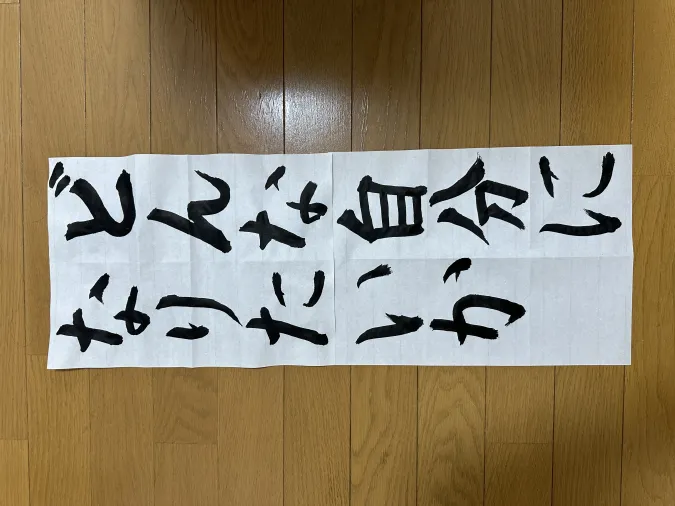 どんな自分に
なりたいか